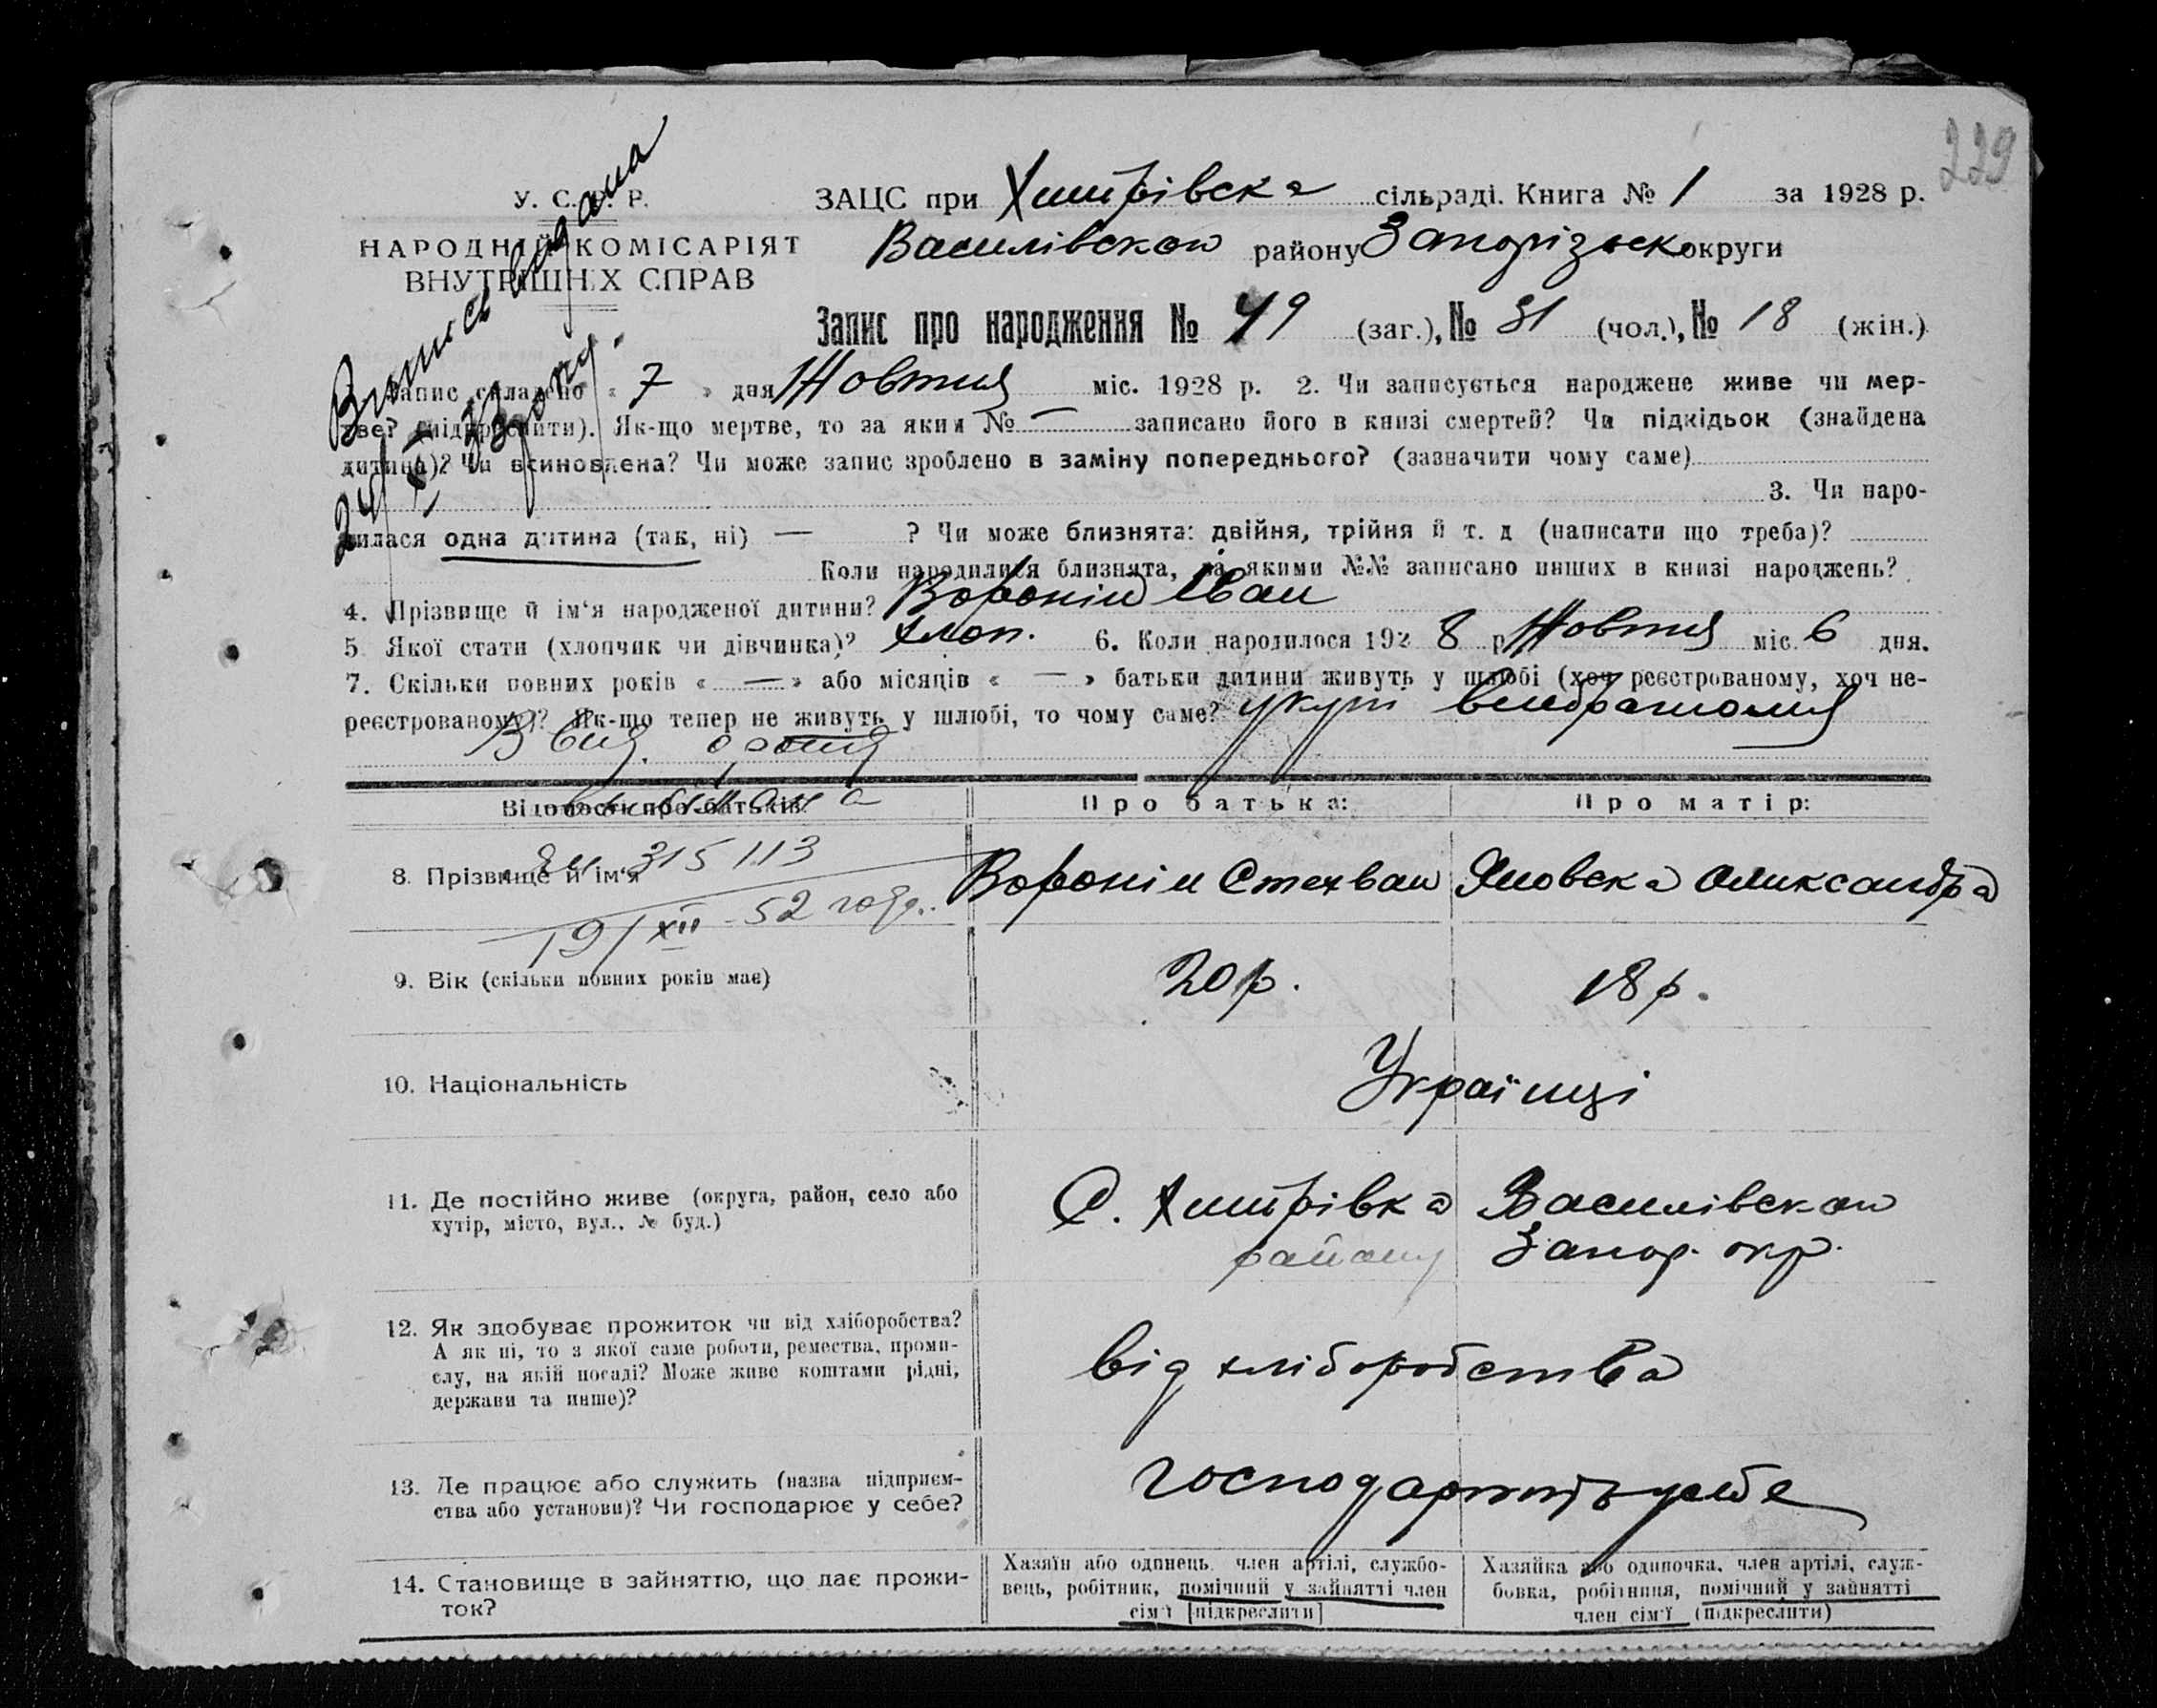 229
У. С. Р. Р.
НАРОДНІЙ КОМІСАРІЯТ
ВНУТРІШНІХ СПРАВ
ЗАЦС при сільраді. Книга № 1 за 1928 р.
Василівскаи району Запорізьск округи
Запис про народження № 49 (заг.), № 31 (чол.), № 18 (жін.)
Випис видана
Запис складено « 7 » дня Жовтня міс. 1928 р. 2. Чи записується народжене живе чи мер-
тве? (підкреслити). Як-що мертве, то за яким № — записано його в книзі смертей? Чи підкідьок (знайдена
дитина)? Чи всиновлена? Чи може запис зроблено в заміну попереднього? (зазначити чому саме)
3. Чи наро-
дилася одна дитина (так, ні) — ? Чи може близнята: двійня, трійня й т. д (написати що треба)?
Коли народилися близнята, за якими №№ записано инших в книзі народжень?
4. Прізвище й ім‘я народженої дитини? Воронін Іван
5 Якої стати (хлопчик чи дівчинка)? хлоп. 6. Коли народилося 192 8 р Жовтня міс. 6 дня.
7. Скільки повних років « — » або місяців « — » батьки дитини живуть у шлюбі (хоч реєстрованому, хоч не-
реєстрованому)? Як-що тепер не живуть у шлюбі, то чому саме?
Відомости про батьків
Про батька:
Про матір:
315113
19/XII - 52 года.
8. Прізвище й ім‘я
Воронін Стехван
Яновска Олександра
9. Вік (скільки повних років має)
20 р.
18 р.
10. Національність
Українці
11. Де постійно живе (округа, район, село або
хутір, місто, вул., № буд.)
С. Василівскаи
району Запор. окр.
12. Як здобуває прожиток чи від хліборобства?
А як ні, то з якої саме роботи, ремества, проми-
слу, на якій посаді? Може живе коштами рідні,
держави та инше)?
від хліборобства
13. Де працює або служить (назва підприєм-
ства або установи)? Чи господарює у себе?
14. Становище в зайняттю, що дає прожи-
ток?
Хазяїн або одинець, член артілі, службо-
вець, робітник, помічний у зайнятті член
сім‘ї [підкреслити]
Хазяйка або одиночка, член артілі, служ-
бовка, робітниця, помічний у зайнятті
член сім‘ї (підкреслити)